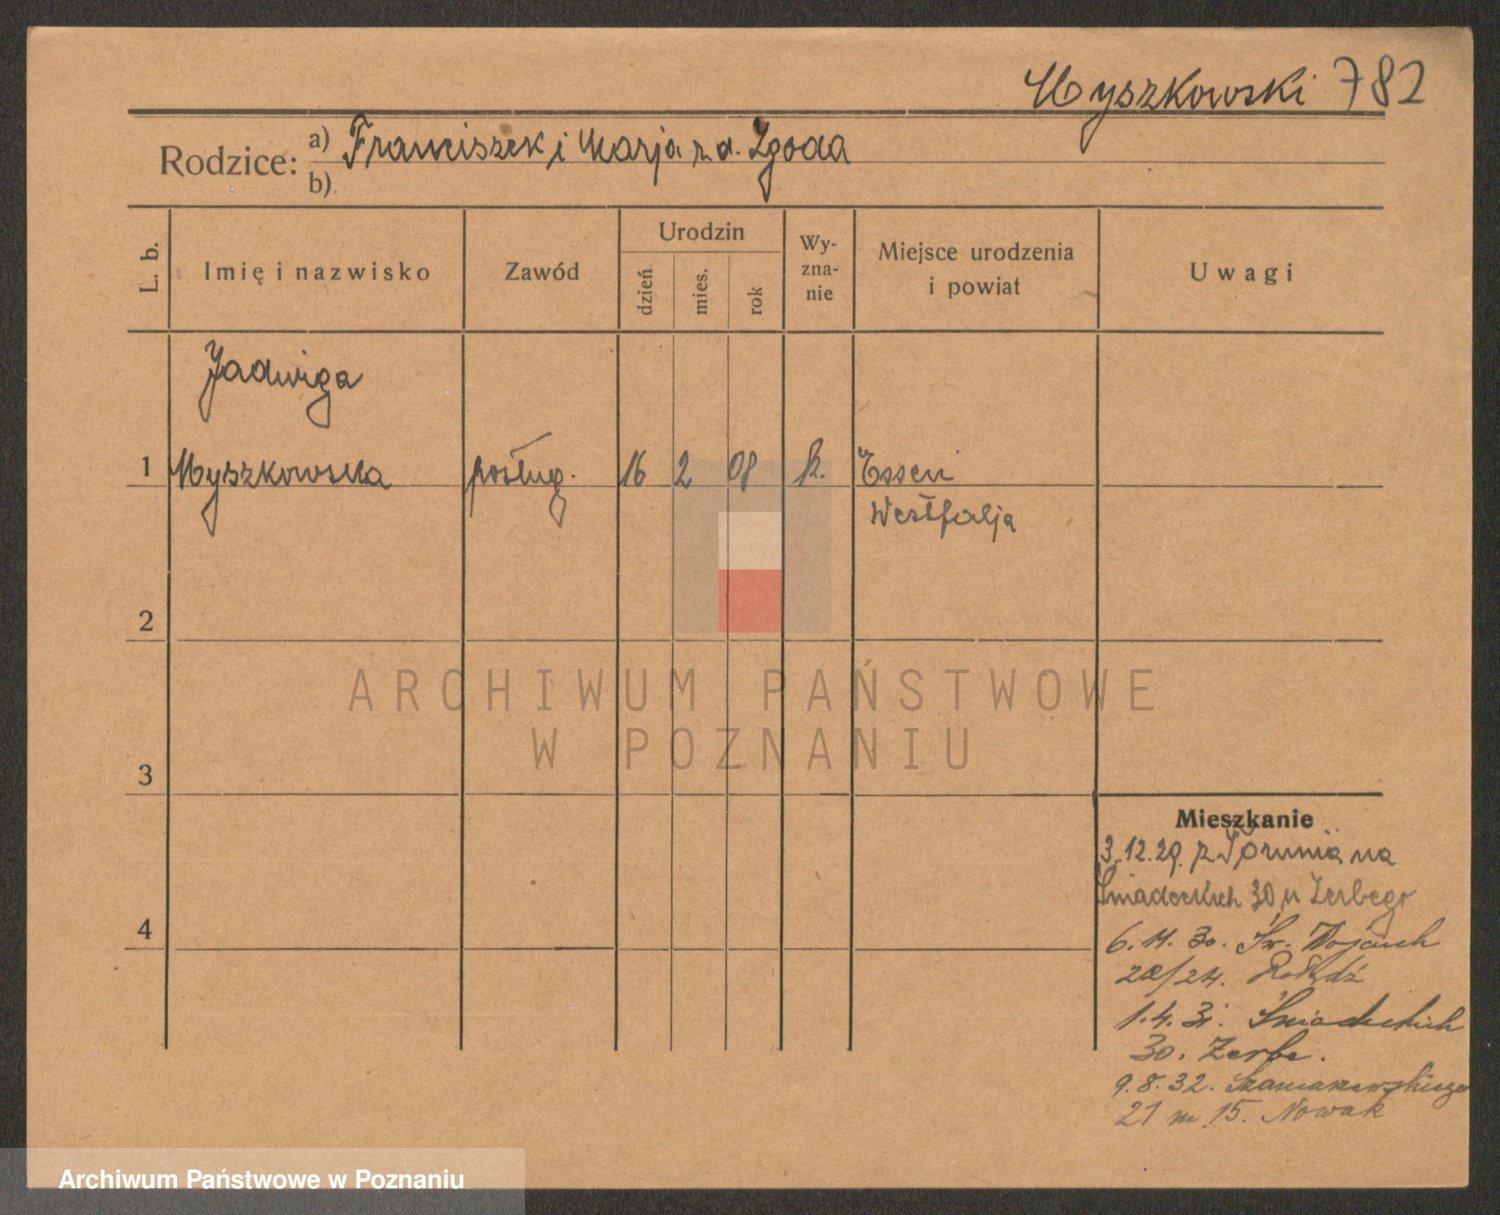 Myszkowski 782
Rodzice: a) Franciszek i Marja z d. Zgoda
b)
L. b.
Imię i nazwisko
Zawód
Urodzin
dzień
mies.
rok
Wy-
zna-
nie
Miejsce urodzenia
i powiat
Uwagi
Jadwiga
1 Myszkowska posług. 16 2 08 k. Essen
Westfalja
2
ARCHIWUM PAŃSTWOWE
W POZNANIU
3
Mieszkanie
3.12.29. z Torunia na
Śniadeckich 30 u Zerbego
4
6.11.30. Św. Wojciech
28/24.
1.4.31. Śniadeckich
30. Zerbe.
9.8.32. Szamarzewskiego
21 m 15. Nowak
Archiwum Państwowe w Poznaniu